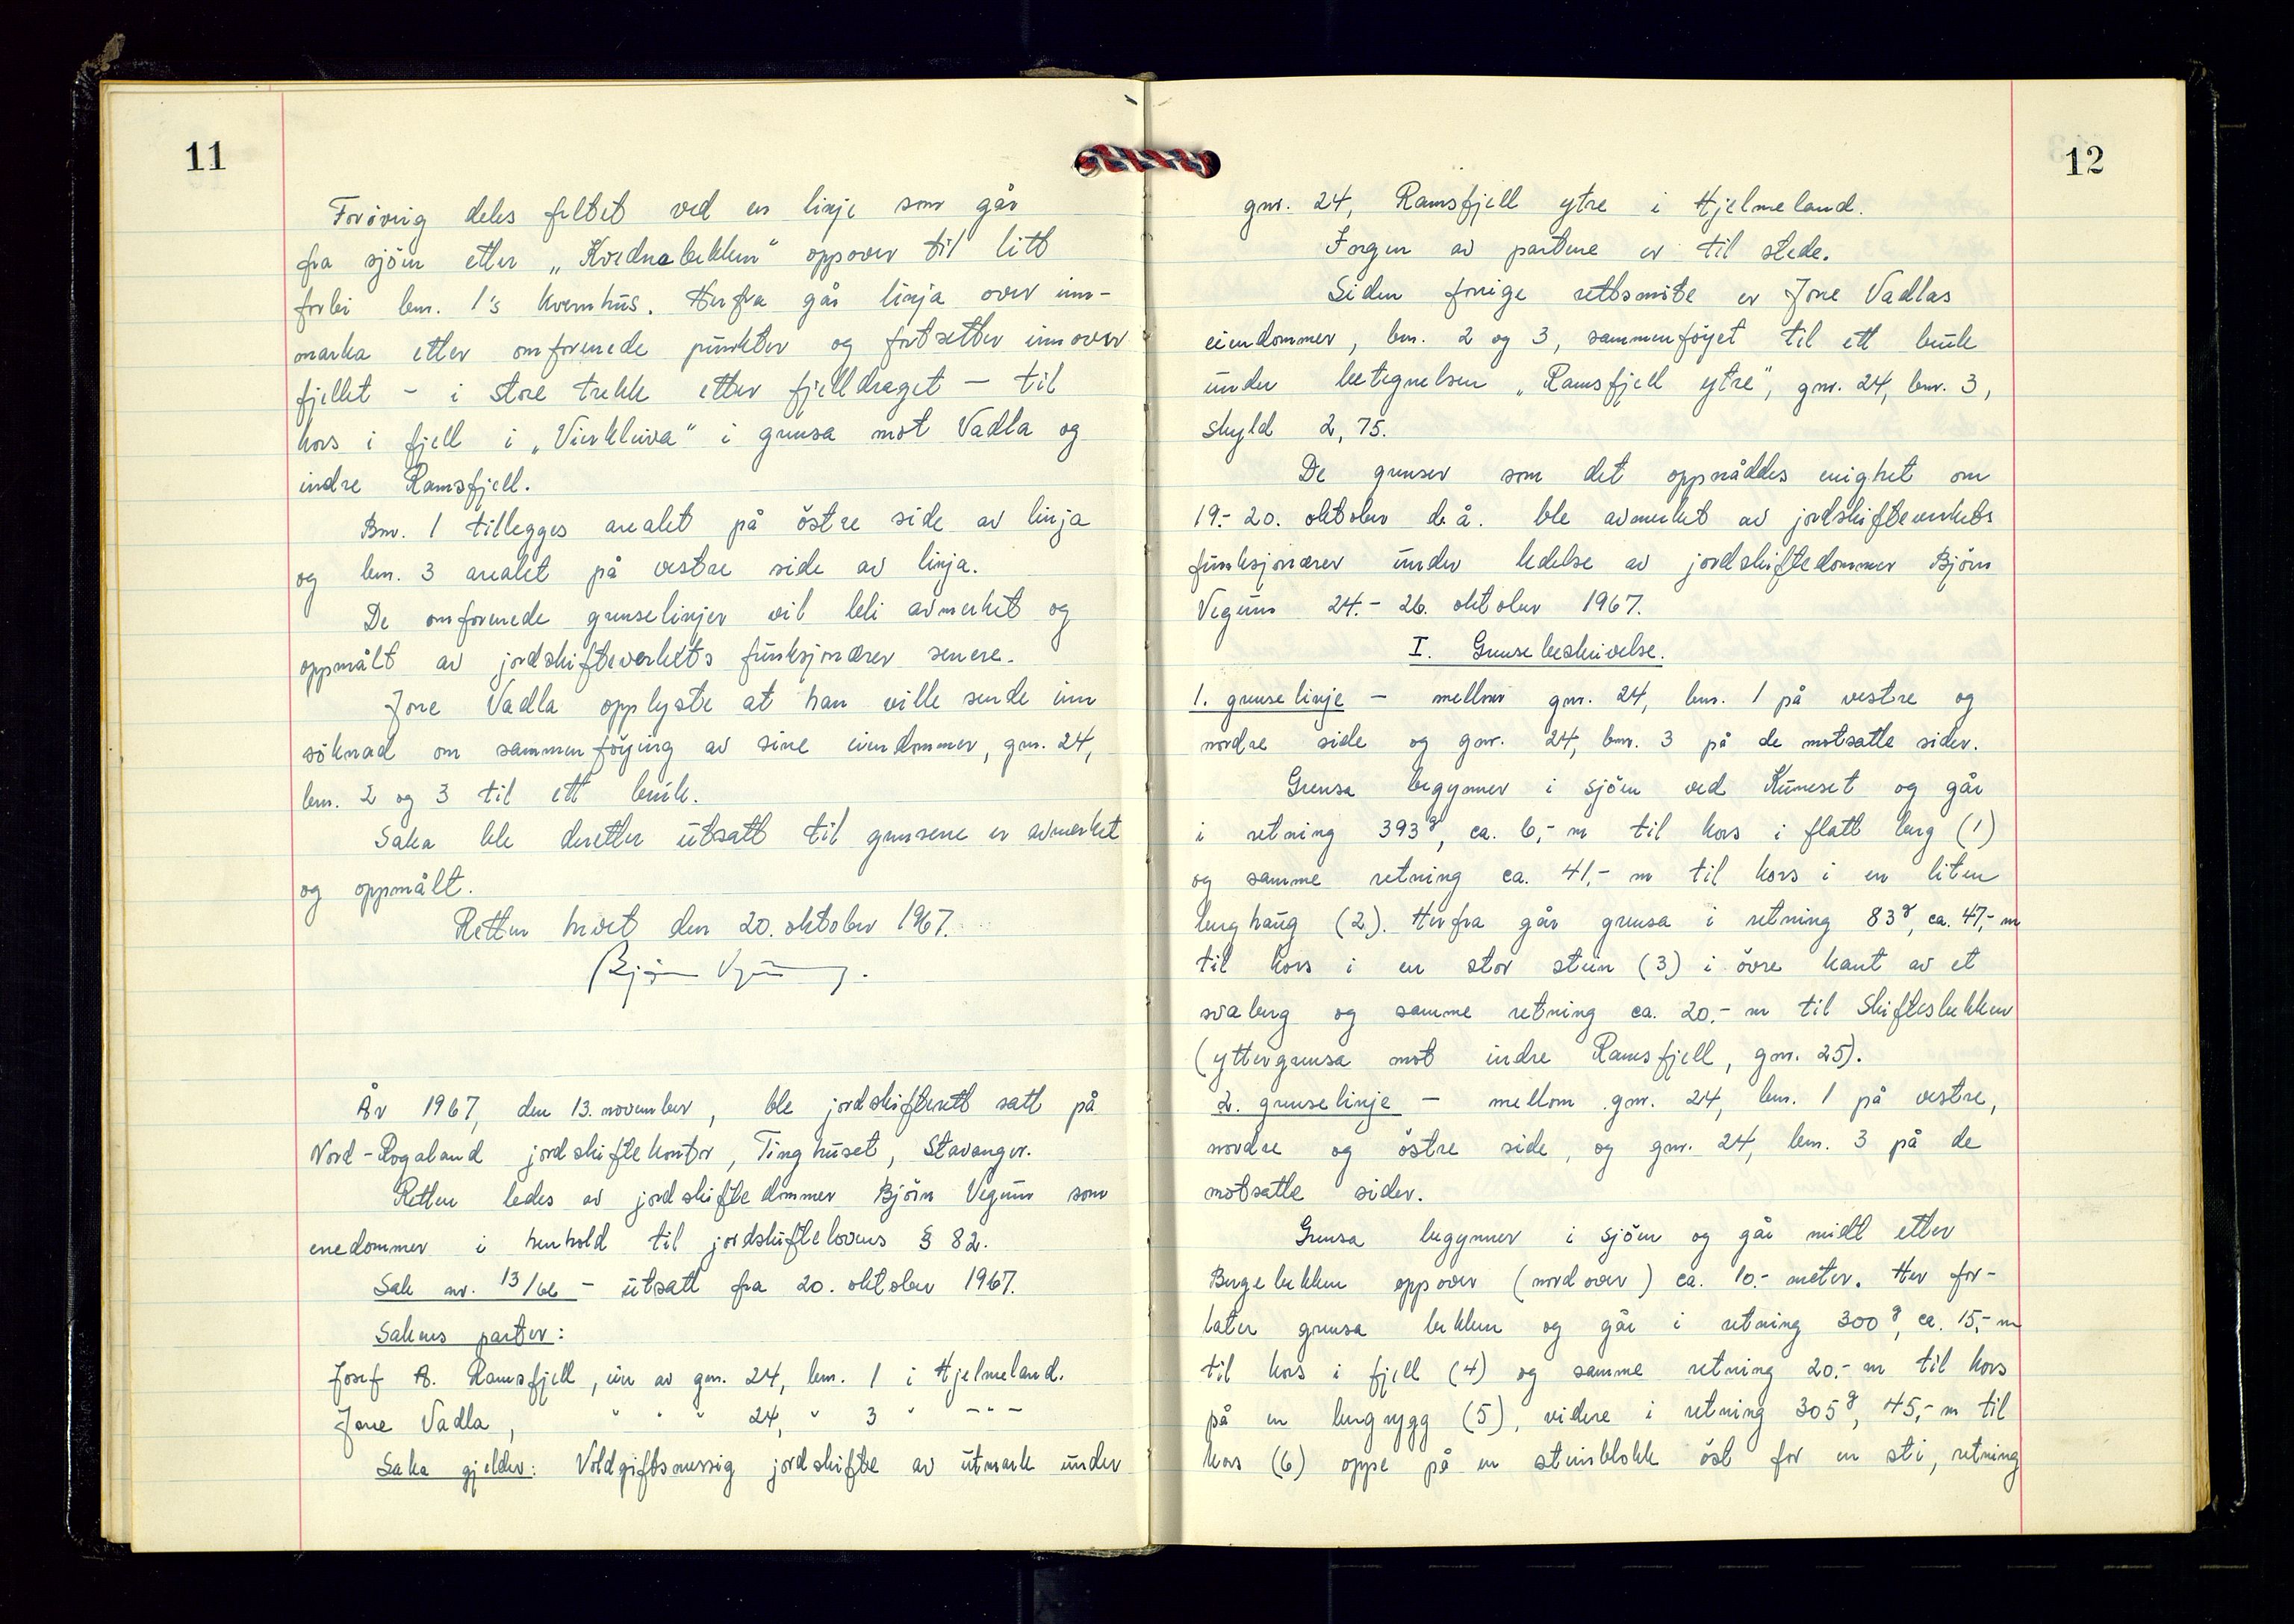 11
Forövrig deles feltet ved en linje som går
fra sjöen etter „Kvednabekken" oppover til litt
forbi bnr. 1's kvernhus. Herfra går linja over inn-
marka etter omforenede punkter og fortsetter innover
fjellet - i store trekk etter fjelldraget - til
kors i fjell i „Vierkleiva" i grensa mot Vadla og
indre Ramsfjell.
Bnr. 1 tillegges arealet på östre side av linja
og bnr. 3 arealet på vestre side av linja.
De omforenede grenselinjer vil bli avmerket og
oppmålt av jordskifteverkets funksjonærer senere.
Jone Vadla opplyste at han ville sende inn
söknad om sammenföying av sine eiendommer, gnr. 24,
bnr. 2 og 3 til ett bruk.
Saka ble deretter utsatt til grensene er avmerket
og oppmålt.
Retten hevet den 20. oktober 1967.
Björn Vegum
År 1967, den 13. november, ble jordskifterett satt på
Nord-Rogaland jordskiftekontor, Tinghuset, Stavanger.
Retten ledes av jordskiftedommer Björn Vegum som
enedommer i henhold til jordskiftelovens § 82.
Sak nr. 13/66 - utsatt fra 20. oktober 1967.
Sakens parter:
Josef A. Ramsfjell, eier av gnr. 24, bnr. 1 i Hjelmeland.
Jone Vadla, " " " 24, " 3 " -"-
Saka gjelder: Voldgiftsmessig jordskifte av utmark under
12
gnr. 24, Ramsfjell ytre i Hjelmeland.
Ingen av partene er til stede.
Siden forrige rettsmöte er Jone Vadlas
eiendommer, bnr. 2 og 3, sammenföyet til ett bruk
under betegnelsen „Ramsfjell ytre", gnr. 24, bnr. 3,
skyld 2,75.
De grenser som det oppnåddes enighet om
19.- 20. oktober d.å. ble avmerket av jordskifteverkets
funksjonærer under ledelse av jordskiftedommer Björn
Vegum 24.- 26. oktober 1967.
I. Grensebeskrivelse.
1. grenselinje - mellom gnr. 24, bnr. 1 på vestre og
nordre side og gnr. 24, bnr. 3 på de motsatte sider.
Grensa begynner i sjöen ved Kuneset og går
i retning 393g, ca. 6,- m til kors i flatt berg (1)
og samme retning ca. 41,- m til kors i en liten
berghaug (2). Herfra går grensa i retning 83g, ca. 47,- m
til kors i en stor stein (3) i övre kant av et
svaberg og samme retning ca. 20.- m til Skiftesbekken
(yttergrensa mot indre Ramsfjell, gnr. 25).
2. grenselinje - mellom gnr. 24, bnr. 1 på vestre,
nordre og östre side, og gnr. 24, bnr. 3 på de
motsatte sider.
Grensa begynner i sjöen og går midt etter
Bergebekken oppover (nordover) ca. 10.- meter. Her for-
later grensa bekken og går i retning 300g, ca. 15,- m
til kors i fjell (4) og samme retning 20.- m til kors
på en bergrygg (5), videre i retning 305g, 45,- m til
kors (6) oppe på en steinblokk öst for en sti, retning